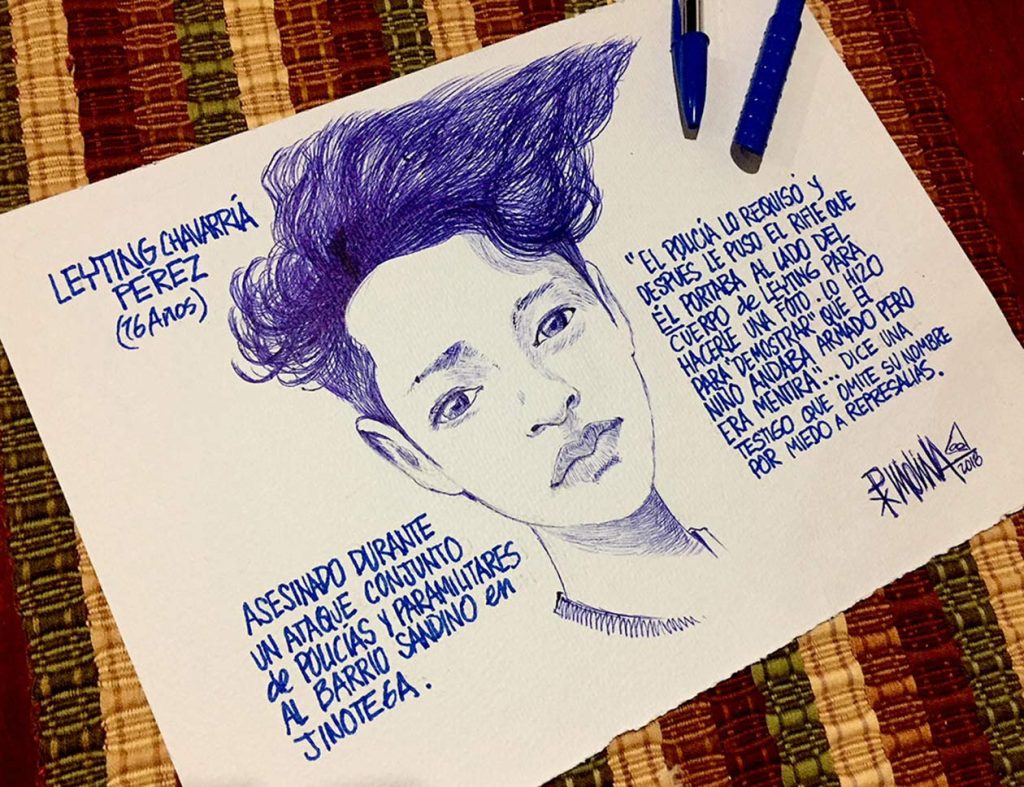 LEYTING CHAVARRÍA
PÉREZ
(16 Años)
"EL POLICÍA LO REQUISÓ Y
DESPUES LE PUSO EL RIFLE QUE
ÉL PORTABA AL LADO DEL
CUERPO de LEYTING PARA
HACERLE UNA FOTO. LO HIZO
PARA "DEMOSTRAR" QUE EL
NIÑO ANDABA ARMADO PERO
ERA MENTIRA"... DICE UNA
TESTIGO QUE OMITE SU NOMBRE
POR MIEDO A REPRESALIAS.
PX MOLINA
2018
ASESINADO DURANTE
UN ATAQUE CONJUNTO
de POLICÍAS Y PARAMILITARES
AL BARRIO SANDINO en
JINOTEGA.